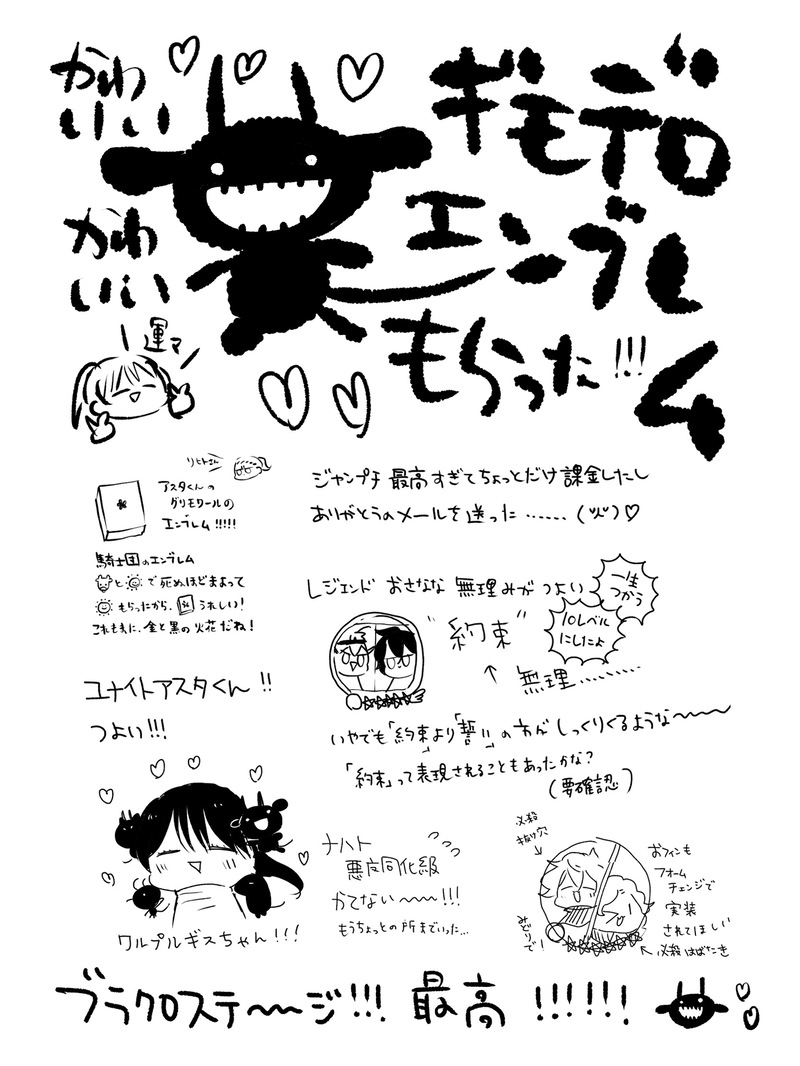 かわ
いい
かわ
いい
ギモデロ
エンブレ
ム
もらった!!!
運マ
リヒトさん
アスタくんの
グリモワールの
エンブレム!!!!!
騎士団のエンブレム
と で死ぬほどまよって
もらったから、 うれしい!
これもまた、金と黒の火花だね!
ジャンプチ 最高すぎてちょっとだけ課金したし
ありがとうのメールを送った……
レジェンド おさなな 無理みがつよい
一生
つかう
10レベル
にしたよ
"約束"
↑ 無理………
いやでも「約束」より「誓い」の方がしっくりくるような〜〜〜
「約束」って表現されることもあったかな?
(要確認)
ユナイトアスタくん!!
つよい!!!
ワルプルギスちゃん!!!
ナハト
悪魔同化級
かてない〜〜!!!
もうちょっとの所までいった…
必殺
抜け穴
みどりで!
おフィンも
フォーム
チェンジで
実装
されてほしい
必殺はばたき
ブラクロステ〜〜ジ!!! 最高!!!!!